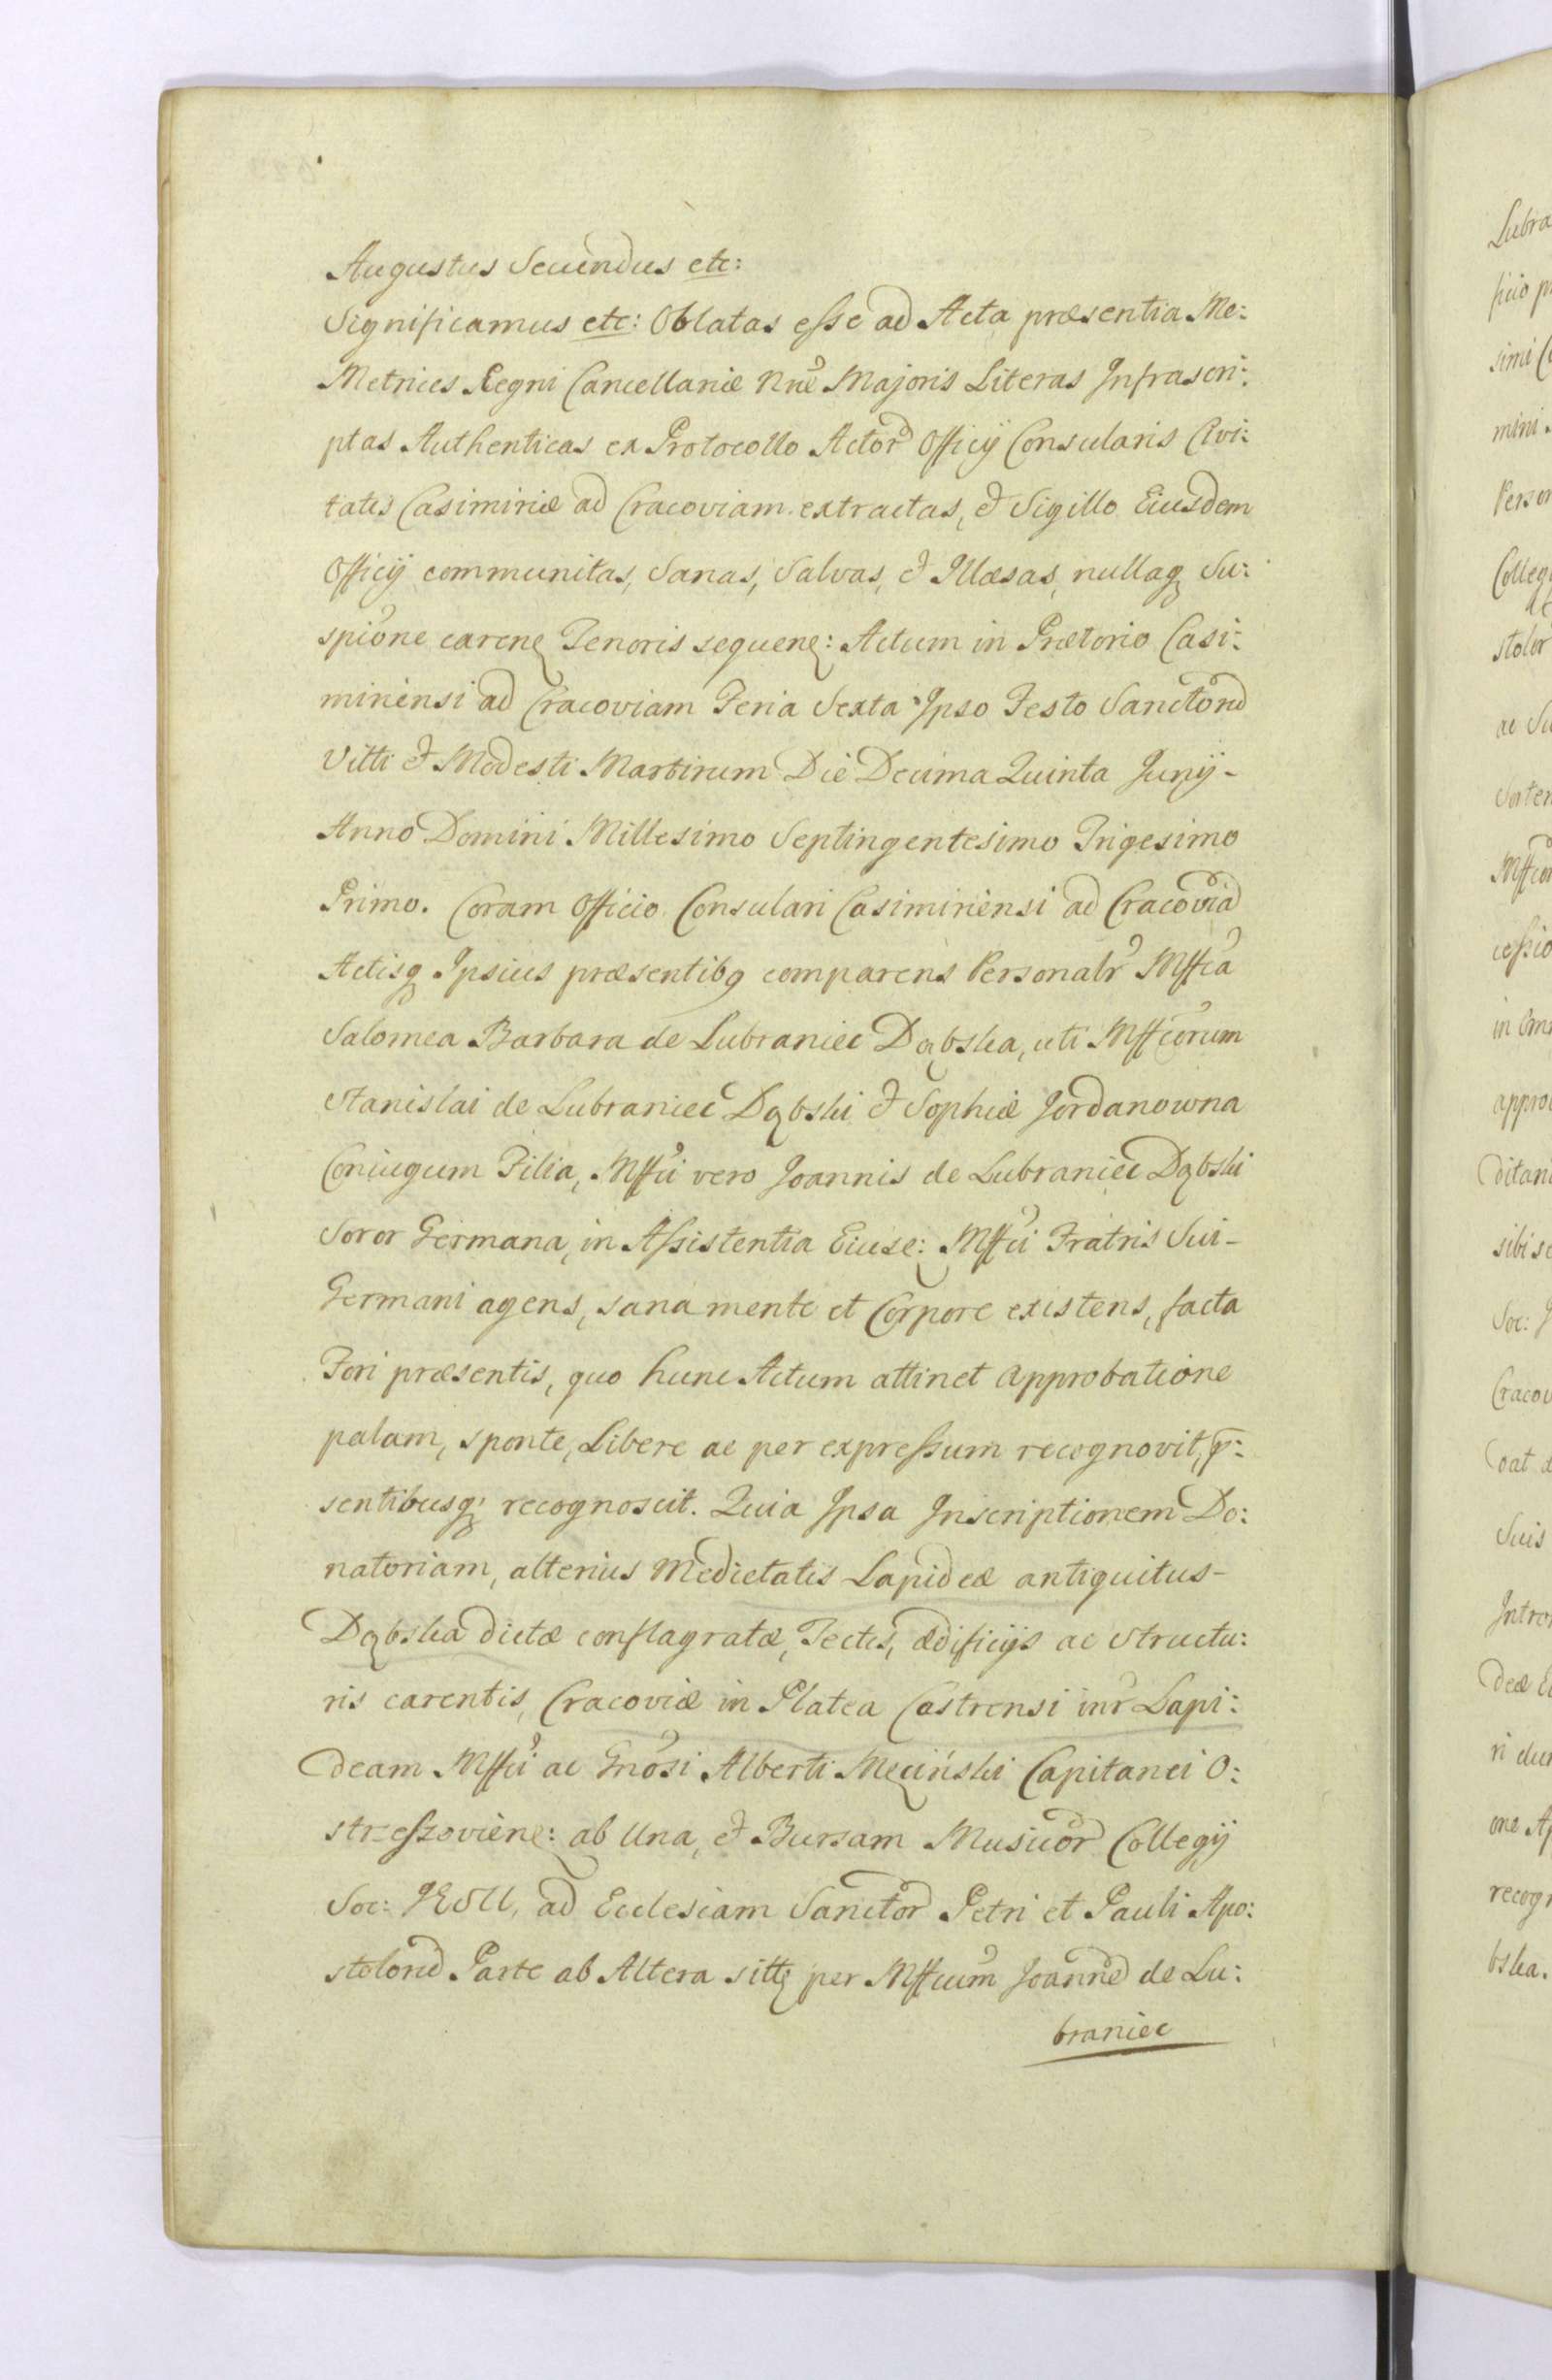 Augustus Secundus etc:
Significamus etc: Oblatas esse ad Acta præsentia Me:
Metrices Regni Cancellariæ Nræ Majoris Literas Infrascri:
ptas Authenticas ex Protocollo Actor Officij Consularis Civi:
tatis Casimiriæ ad Cracoviam extractas, et Sigillo Eiusdem
Officij communitas, Sanas, Salvas, et Illæsas, nullaq Su:
spione caren Tenoris sequen: Actum in Prætorio Casi:
miriensi ad Cracoviam Feria Sexta Ipso Festo Sanctoru
Vitti et Modesti Martirum Die Decima Quinta Junij -
Anno Domini Millesimo Septingentesimo Trigesimo
Primo. Coram Officio Consulari Casimiriensi ad Cracovia
Actisq Ipsius præsentibq comparens Personalr Mffca
Salomea Barbara de Lubraniec Dąbska, uti Mffcorum
Stanislai de Lubraniec Dąbski et Sophiæ Jordanowna
Coniugum Filia, Mffci vero Joannis de Lubraniec Dąbski
Soror Germana, in Assistentia Eiusē: Mffci Fratris Sui -
Germani agens, sana mente et Corpore existens, facta
Fori præsentis, quo hunc Actum attinet approbatione
palam, sponte, Libere ac per expressum recognovit, p:
sentibusq recognoscit. Quia Ipsa Inscriptionem Do:
natoriam, alterius Medietatis Lapideæ antiquitus -
Dąbska dictæ conflagratæ, Tectis, ædificijs ac structu:
ris carentis, Cracoviæ in Platea Castrensi intr Lapi:
deam Mffci ac Gnosi Alberti Męciński Capitanei O:
strzeszovien: ab Una, et Bursam Musicor Collegij
Soc: JESU, ad Ecclesiam Sanctor Petri et Pauli Apo:
stoloru Parte ab Altera sitt per Mffcum Joanne de Lu:
braniec
Lubra
ficio p
simi C
mini.
Person
Colleg
stolor
ac Su
Saten
Mffcor
cessio
in Om
appro
ditan
sibi s
Soc: J
Cracov
dat
Suis
Intro
deæ E
ri dun
one Ap
recogn
bska.